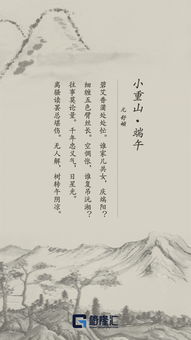 小重山·端午
元 舒頔
碧艾香蒲处处忙。谁家儿共女，庆端阳？
细缠五色臂丝长。空惆怅，谁复吊沅湘？
往事莫论量。千年忠义气，日星光。
离骚读罢总堪伤。无人解，树转午阴凉。
格隆汇